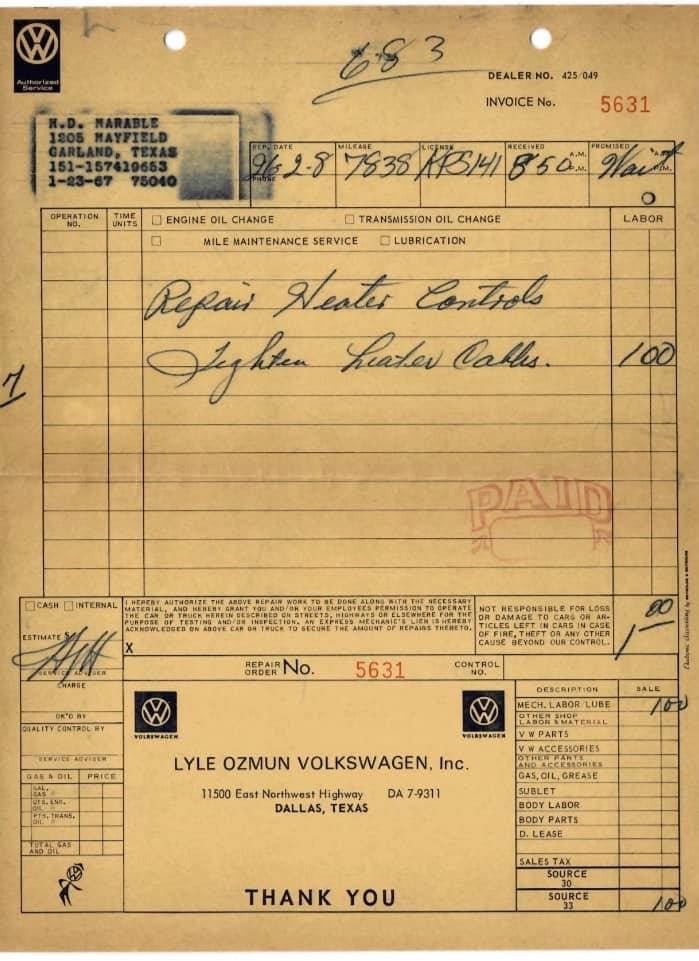 Authorized
Service
683
DEALER NO. 425/049
INVOICE No. 5631
H.D. MARABLE
1205 MAYFIELD
GARLAND, TEXAS
151-157419653
1-23-67 75040
REP. DATE
MILEAGE
LICENSE
RECEIVED
PROMISED
2-8
7838
850
A.M.
P.M.
Wait
PHONE
OPERATION
NO.
TIME
UNITS
ENGINE OIL CHANGE
TRANSMISSION OIL CHANGE
LABOR
MILE MAINTENANCE SERVICE
LUBRICATION
Repair Heater Controls
Tighten heater Cables.
100
7
PAID
CASH INTERNAL
I HEREBY AUTHORIZE THE ABOVE REPAIR WORK TO BE DONE ALONG WITH THE NECESSARY
MATERIAL, AND HEREBY GRANT YOU AND/OR YOUR EMPLOYEES PERMISSION TO OPERATE
THE CAR OR TRUCK HEREIN DESCRIBED ON STREETS, HIGHWAYS OR ELSEWHERE FOR THE
PURPOSE OF TESTING AND/OR INSPECTION. AN EXPRESS MECHANIC'S LIEN IS HEREBY
ACKNOWLEDGED ON ABOVE CAR OR TRUCK TO SECURE THE AMOUNT OF REPAIRS THERETO.
X
NOT RESPONSIBLE FOR LOSS
OR DAMAGE TO CARS OR AR-
TICLES LEFT IN CARS IN CASE
OF FIRE, THEFT OR ANY OTHER
CAUSE BEYOND OUR CONTROL.
1 00
ESTIMATE $
SERVICE ADVISER
CHARGE
OK'D BY
QUALITY CONTROL BY
SERVICE ADVISER
REPAIR
ORDER No. 5631
CONTROL
NO.
VOLKSWAGEN
VOLKSWAGEN
LYLE OZMUN VOLKSWAGEN, Inc.
11500 East Northwest Highway DA 7-9311
DALLAS, TEXAS
THANK YOU
GAS & OIL PRICE
GAL.
GAS
QTS. ENG.
OIL
PTS. TRANS.
OIL
TOTAL GAS
AND OIL
DESCRIPTION SALE
MECH. LABOR/LUBE 100
OTHER SHOP
LABOR & MATERIAL
V W PARTS
V W ACCESSORIES
OTHER PARTS
AND ACCESSORIES
GAS, OIL, GREASE
SUBLET
BODY LABOR
BODY PARTS
D. LEASE
SALES TAX
SOURCE
30
SOURCE
33
100